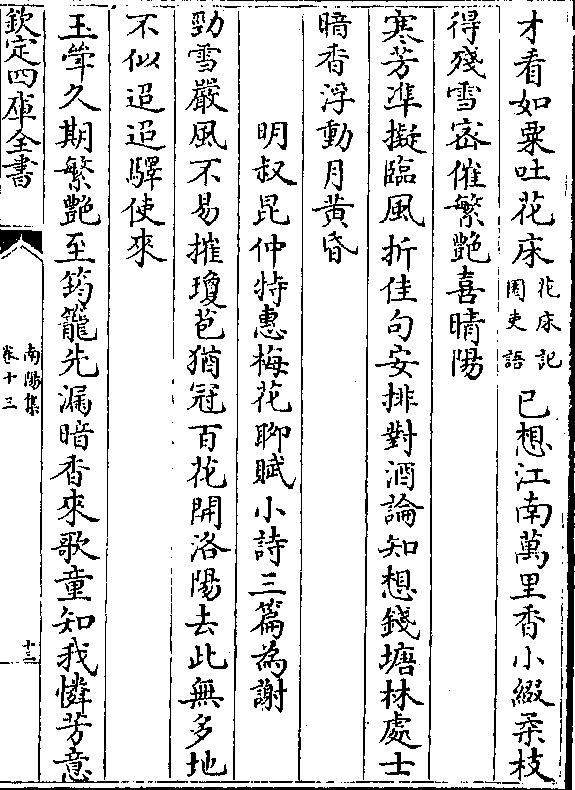 才看如粟吐花床花床記囿吏語已想江南萬里香小綴柔枝
得殘雪密催繁艷喜晴陽
寒芳準擬臨風折佳句安排對酒論知想錢塘林處士
暗香浮動月黃昏
明叔昆仲特惠梅花聊賦小詩三篇為謝
勁雪嚴風不易摧瓊苞猶冠百花開洛陽去此無多地
不似迢迢驛使來
玉峯久期繁艷至筠籠先漏暗香來歌童知我憐芳意
欽定四庫全書
南陽集
卷十三
十三